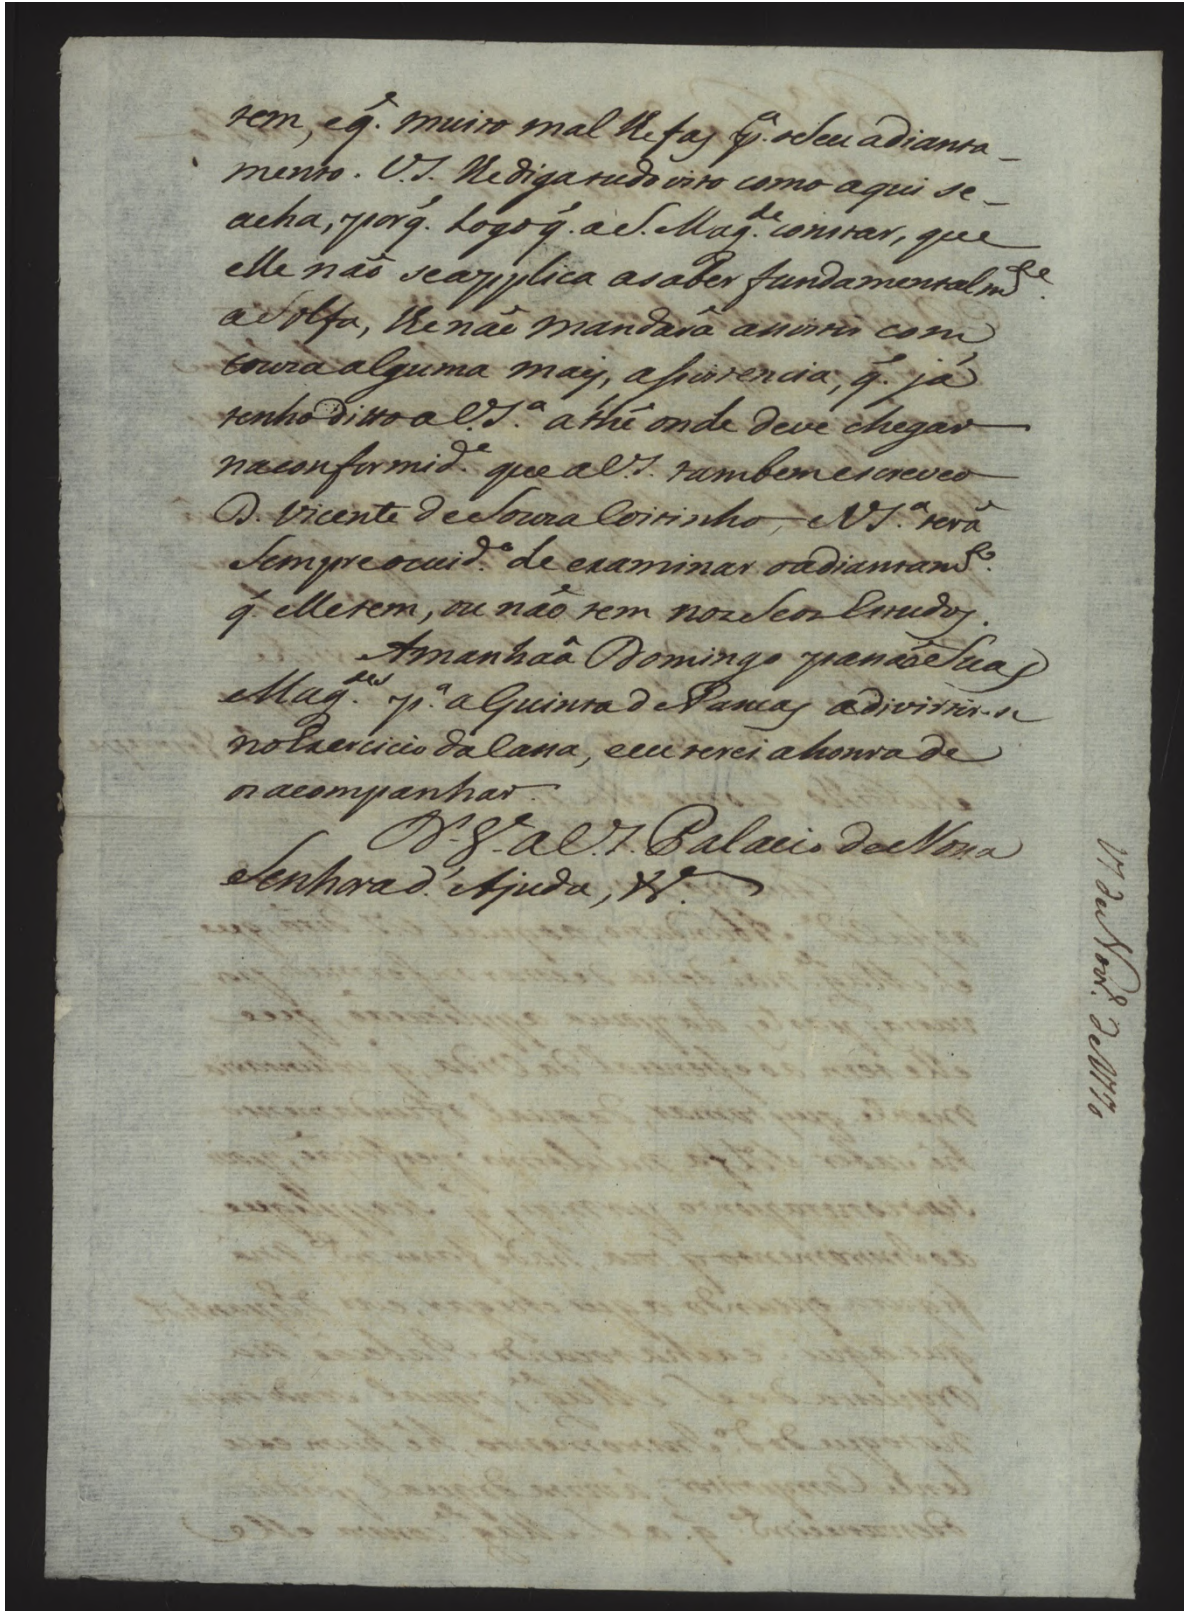 tem, e q.^e muito mal lhe fas p.^a o Seu adianta-
mento. V.S. lhe diga tudo isto como aqui se
acha, porq̃. Logo q̃. a S. Mag.^de constar, que
elle naõ se applica a saber fundamentalm.^te
a Solfa, lhe naõ mandarâ assistir com
couza alguma mais, assistencia, q̃. já
tenho ditto a V.S.^a athê onde deve chegar
na conformid.^e que a V.S. tambem escreveo
D. Vicente de Souza Coitinho, e V.S.^a terâ
Sempre o cuid.^o de examinar o adiantam.^to
q̃. elle tem, ou naõ tem nos Seos Estudos.
Amanhaã Domingo passaõ Suas
Mag.^des p.^a a Quinta de Pancas a divirtir-se
no Exercicio da Cassa, e eu terei a honra de
os acompanhar.
D.^s g.^e a V.S. Palacio de Nossa
Senhora d'Ajuda, &.^a
17 de Novr.^o de 1770